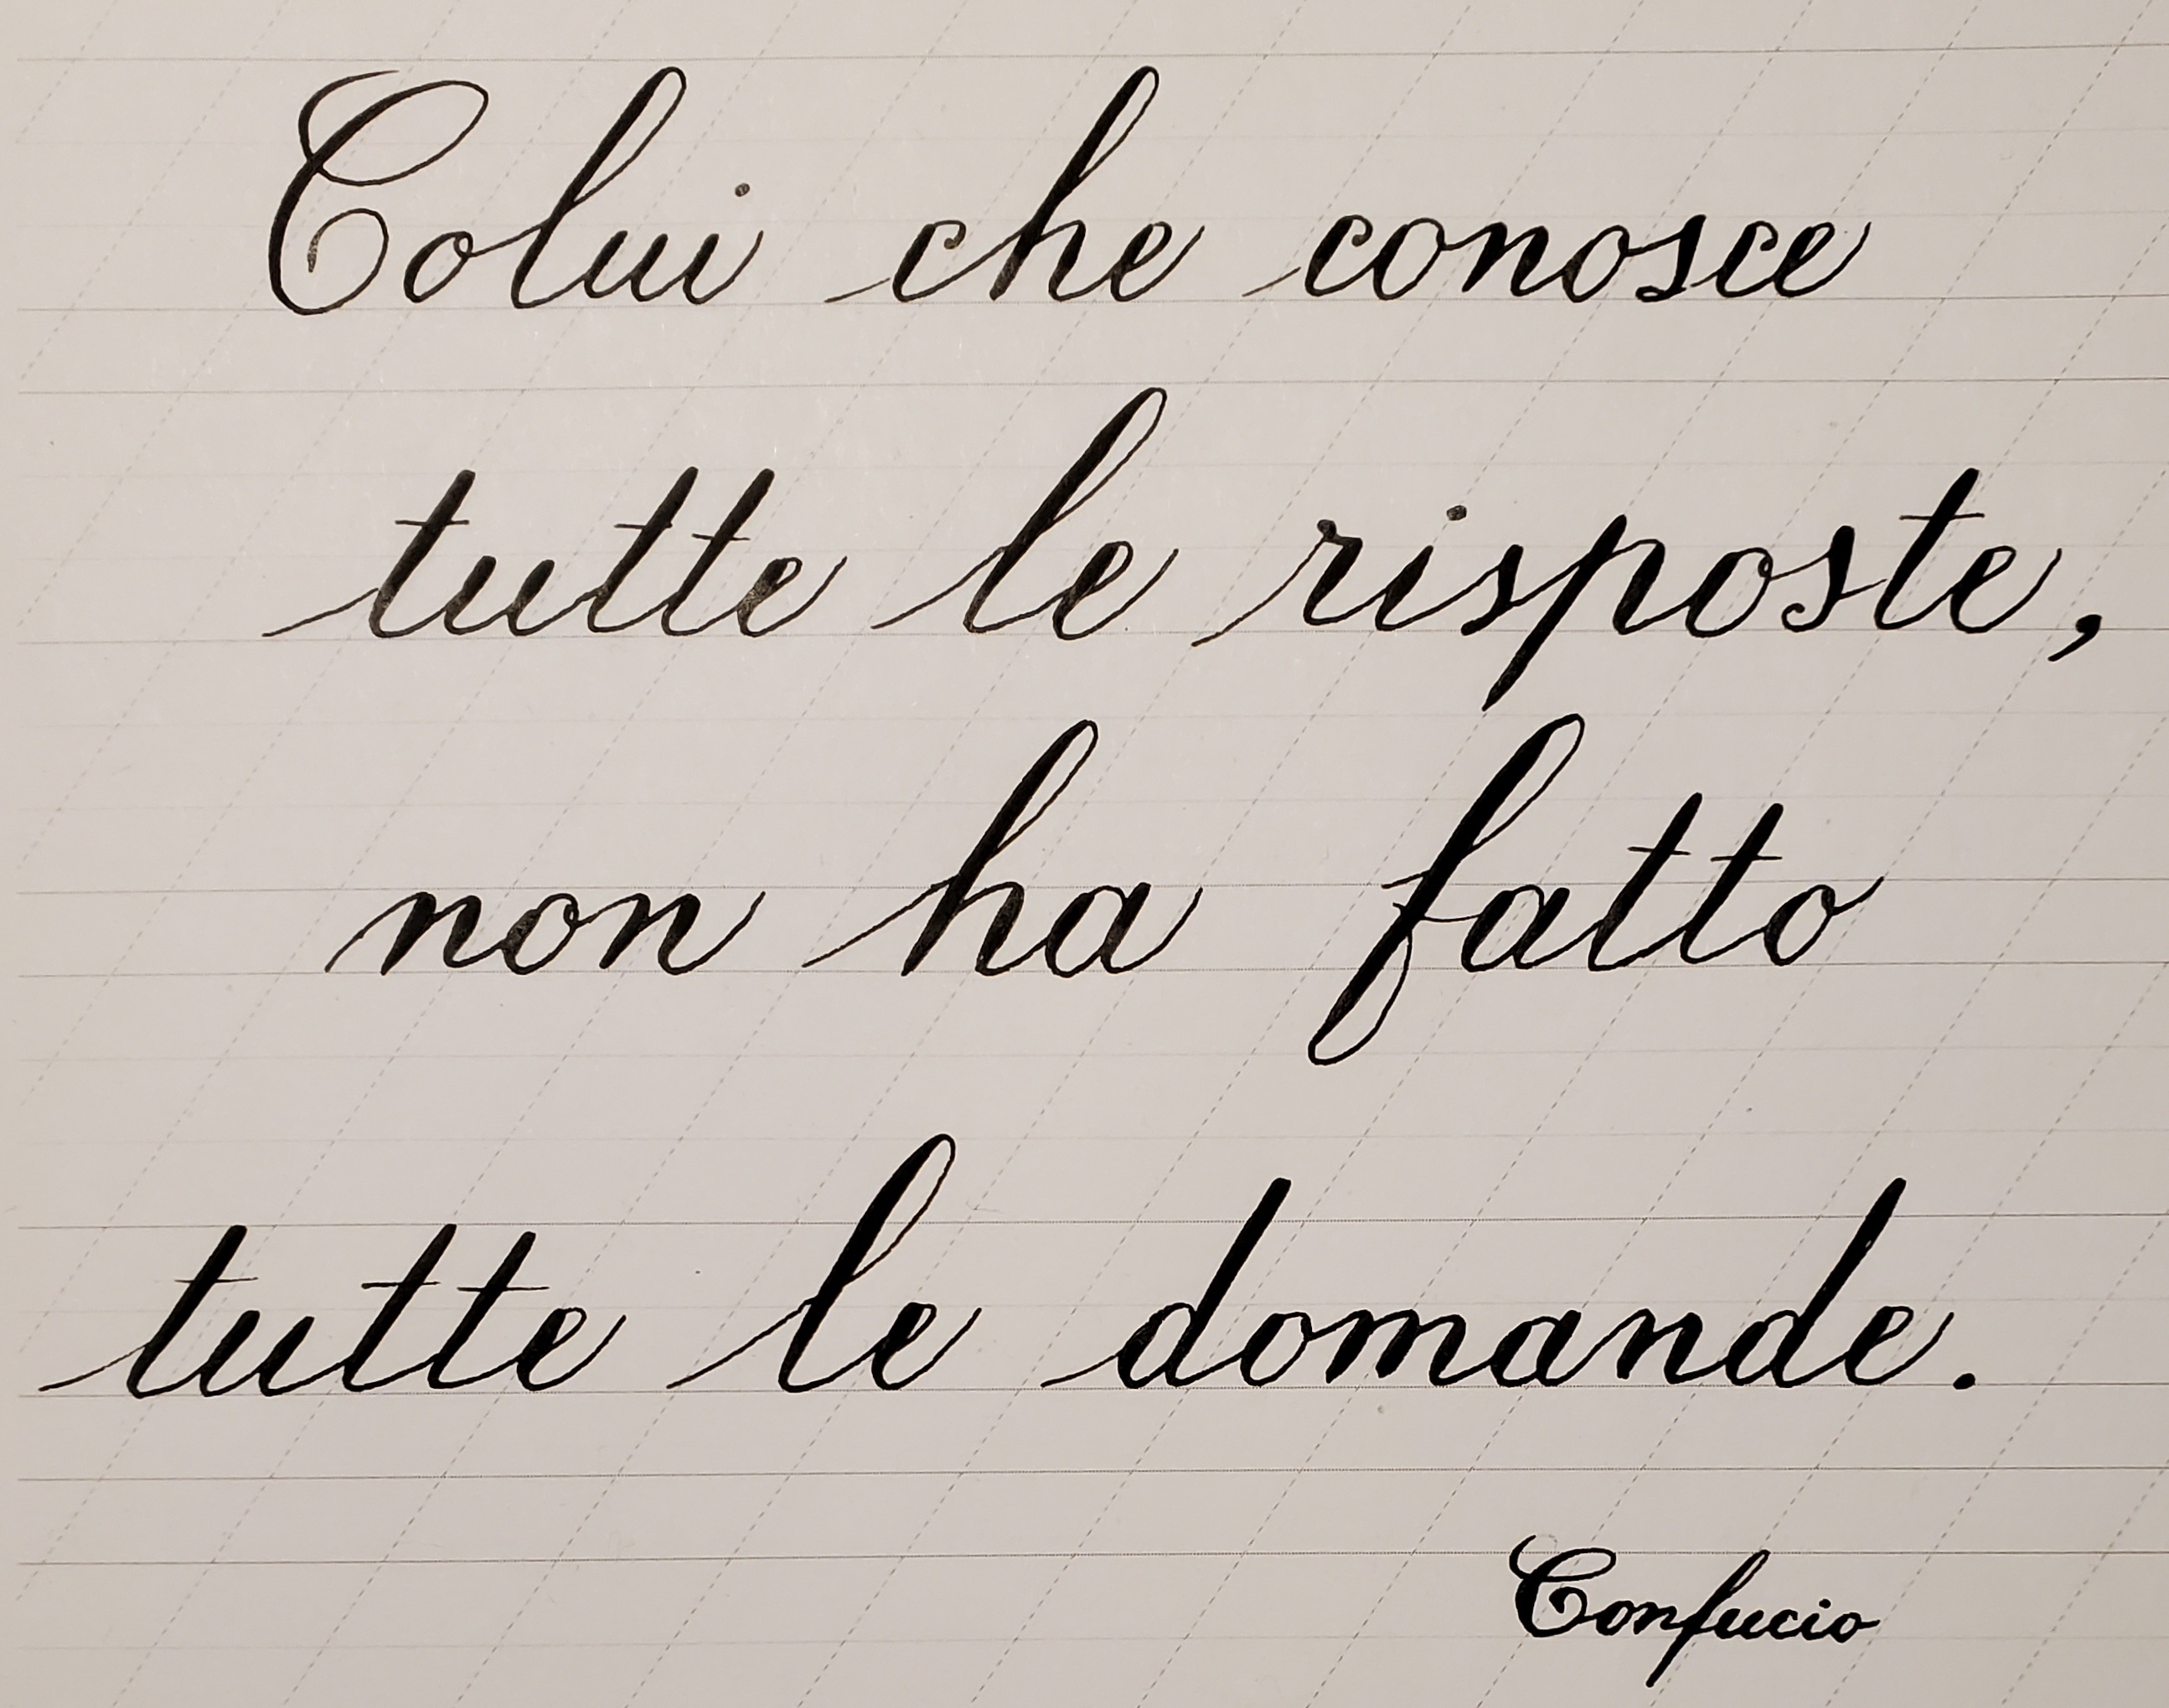 Colui che conosce
tutte le risposte,
non ha fatto
tutte le domande.
Confucio